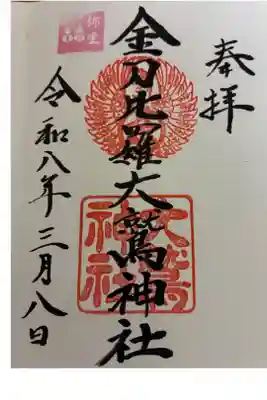 奉拝
金刀比羅大鷲神社
大鷲
神社
令和八年三月八日
弥生